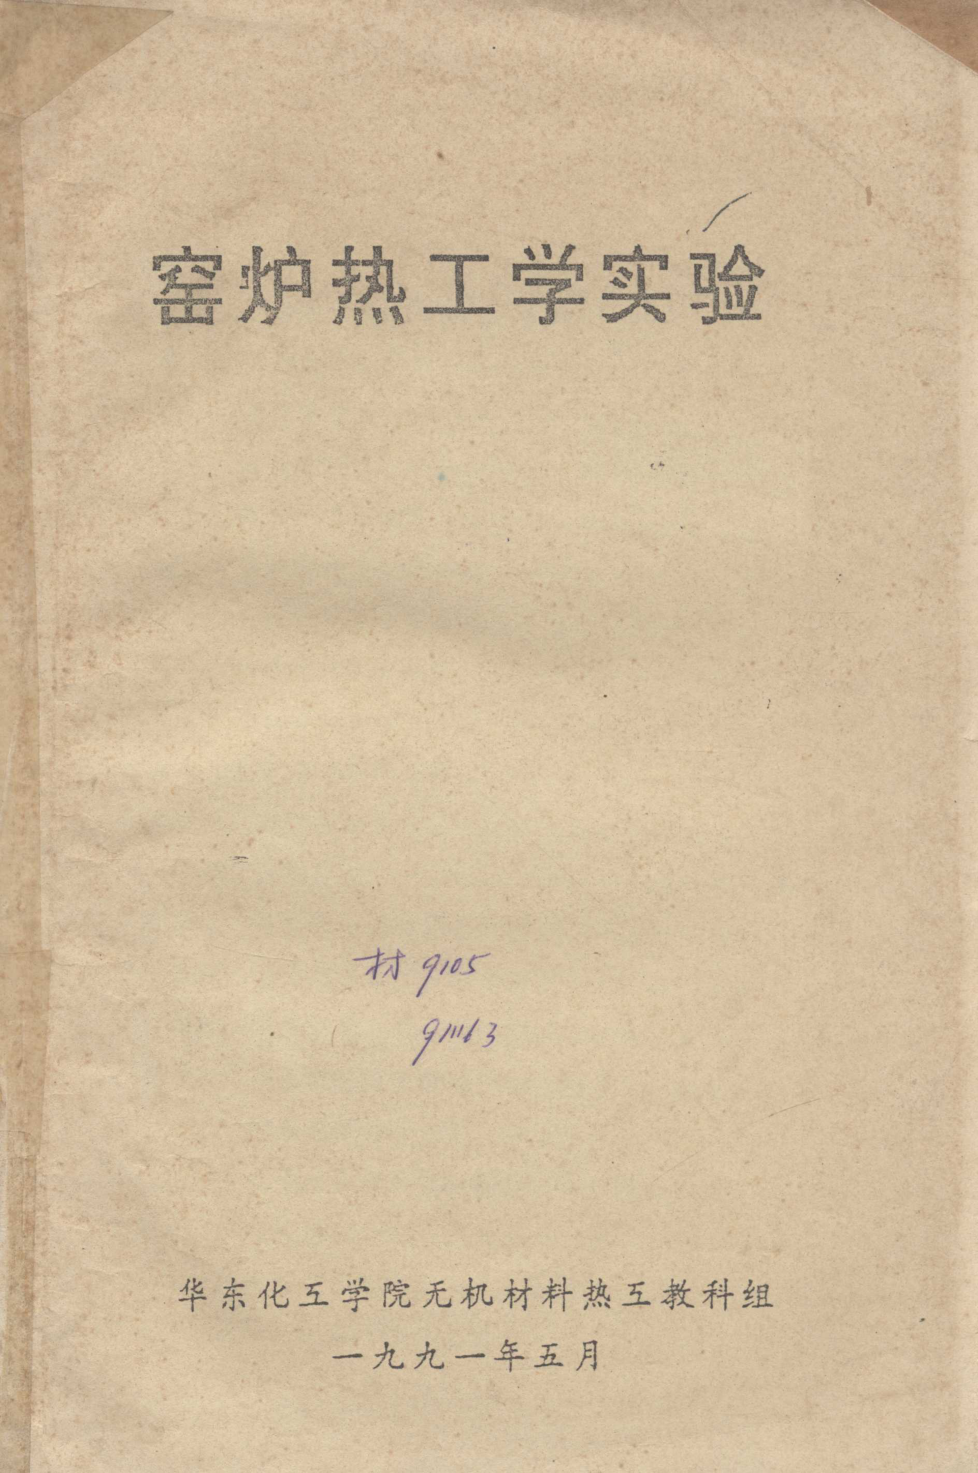 窑炉热工学实验
材 9105
911163
华东化工学院无机材料热工教科组
一九九一年五月